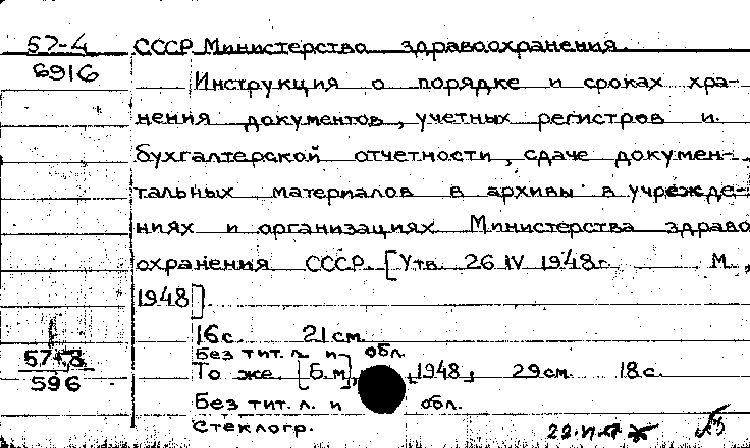 57-4 СССР Министерство здравоохранения.
6916 Инструкция о порядке и сроках хра-
нения документов, учетных регистров и
бухгалтерской отчетности, сдаче докумен-
тальных материалов в архивы в учрежде-
ниях и организациях Министерства здраво
охранения СССР. [Утв. 26 IV 1948г. М.,
1948].
16с. 21см.
Без тит. л. и обл.
57-8 То же. [Б.м], 1948, 29см. 18с.
596
Без тит. л. и обл.
Стеклогр.